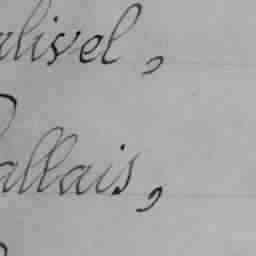 alisel,
allais,